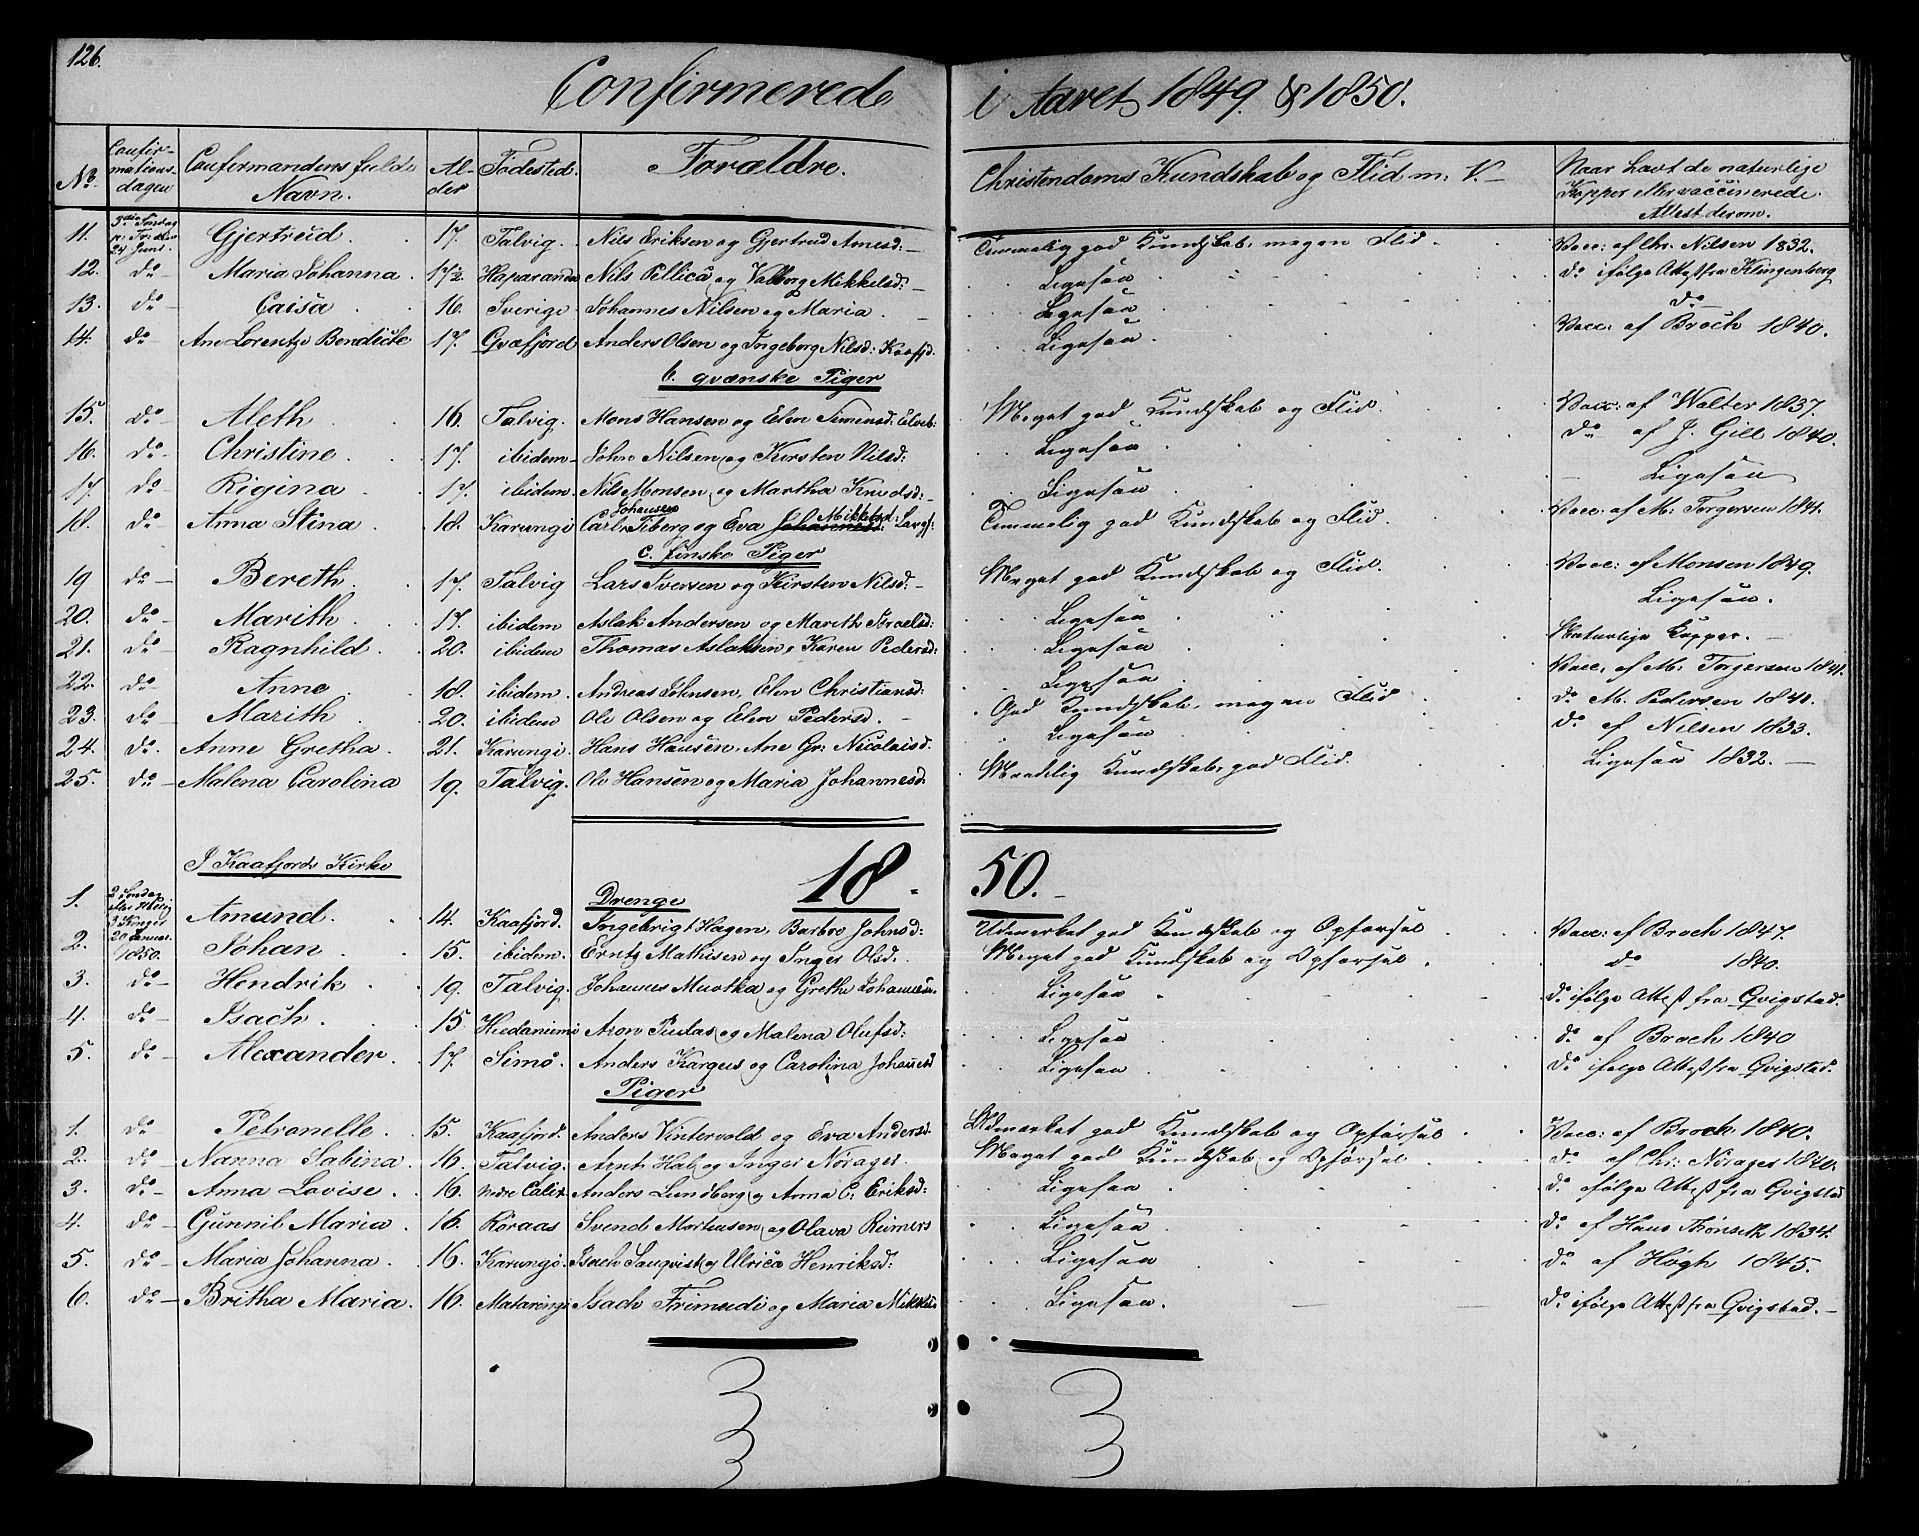 126.
Confirmerede i Aaret 1849 & 1850.
No. Confirmationsdagen Confirmandens fulde Navn. Alder Fødested. Forældre. Christendoms Kundskab og Flid m: V. Naar havt de naturlige Kopper eller vaccinerede. Attest derom.
11. 3die Søndag p: Tr: 24 Juni Gjertrud. 17. Talvig. Nils Eriksen og Gjertrud Amesd: Temmelig god Kundskab, megen Flid. Vacc: af Chr. Nilsen 1832.
12. do Maria Johanna. 17½ Haparanda Nils Pellica og Valborg Mikkelsd: Ligesaa do ifølge Attest fra Klingenberg
13. do Caisa 16. Sverige Johannes Nilsen og Maria. Ligesaa do
14. do Ane Lorentze Bendicte 17. Qvæfjord Anders Olsen og Ingeborg Nilsd: Kaafjd. Ligesaa Vacc: af Broch 1840.
b. qvænske Piger
15. do Aleth 16. Talvig. Mons Hansen og Elen Simensd: Elveb: Meget god Kundskab og Flid. Vacc: af Walter 1837.
16. do Christine. 17. ibidem John Nilsen og Kirsten Nilsd: Ligesaa do af J. Gill 1840.
17. do Rigina 17. ibidem. Nils Monsen og Martha Knudsd: Ligesaa Ligesaa
18. do Anna Stina 18. Karungi Carl Johansen Tiberg og Eva Mikkelsd: Temmelig god Kundskab og Flid. Vacc: af M: Torgersen 1841.
c. finske Piger
19 do Bereth. 17. Talvig Lars Iversen og Kirsten Nilsd: Meget god Kundskab og Flid. Vacc: af Monsen 1849.
20. do Marith. 17. ibidem Aslak Andersen og Marith Israelsd: Ligesaa Ligesaa.
21. do Ragnhild. 20. ibidem Thomas Aslaksen, Karen Pedersd: Ligesaa Naturlige Kopper.
22. do Anne 18. ibidem. Andreas Johnsen, Elen Christiansd: Ligesaa Vacc. af M: Torgersen 1841.
23. do Marith 20. ibidem Ole Olsen og Elen Pedersd. God Kundskab, megen Flid do M. Pedersen 1840.
24. do. Anne Gretha. 21. Karungi. Hans Hansen, Ane Gr: Nicolaisd. Ligesaa do af Nilsen 1833.
25. do Malena Carolina 19. Talvig. Ole Hansen og Maria Johannesd. Maadelig Kundskab, god Flid. Ligesaa 1832.
I Kaafjords Kirke
1850.
Drenge
1. 2 Søndag efter Hellig 3 Konger 20 Januar 1850. Amund. 14. Kaafjord. Ingebrigt Hagen, Barbro Johnsd: Udmærket god Kundskab og Opførsel Vacc: af Broch 1847.
2. Johan 15. ibidem. Erntz Mathisen og Inger Olsd. Meget god Kundskab og Opførsel do 1840.
3. do Hendrik 19. Talvig. Johannes Muotka og Grethe Johannesd. Ligesaa do ifølge Attest fra Qvigstad.
4. do Isach. 15. Hiedaniemi Aron Pudas og Malena Olufsd: Ligesaa do af Broch 1840
5. do Alexander. 17. Simo. Anders Kargus og Carolina Johansd Ligesaa do ifølge Attest fra Qvigstad.
Piger
1. do Petronelle. 15. Kaafjord. Anders Vintervold og Eva Andersd. Udmærket god Kundskab og Opførsel Vacc: af Broch 1840.
2. do Nanna Sabina. 16. Talvig. Arnt Hal og Inger Nørager. Meget god Kundskab og Opførsel do af Chr: Nørager 1840.
3. do Anna Lovise. 16. Nedre Calix. Anders Lundberg og Anna C: Eriksd: Ligesaa do ifølge Attest fra Qvigstad
4. do Gunnil Maria. 16. Røraas Svend Mortensen og Olava Reimers Ligesaa do af Hans Mønsck 1834.
5. do Maria Johanna. 16. Karungi. Isach Sanqvist og Ulrica Henriksd: Ligesaa do af Høgh 1845.
6. do Britha Maria. 16. Matarengi Isach Frimudi og Maria Mikkelsd Ligesaa. do ifølge Attest fra Qvigstad.